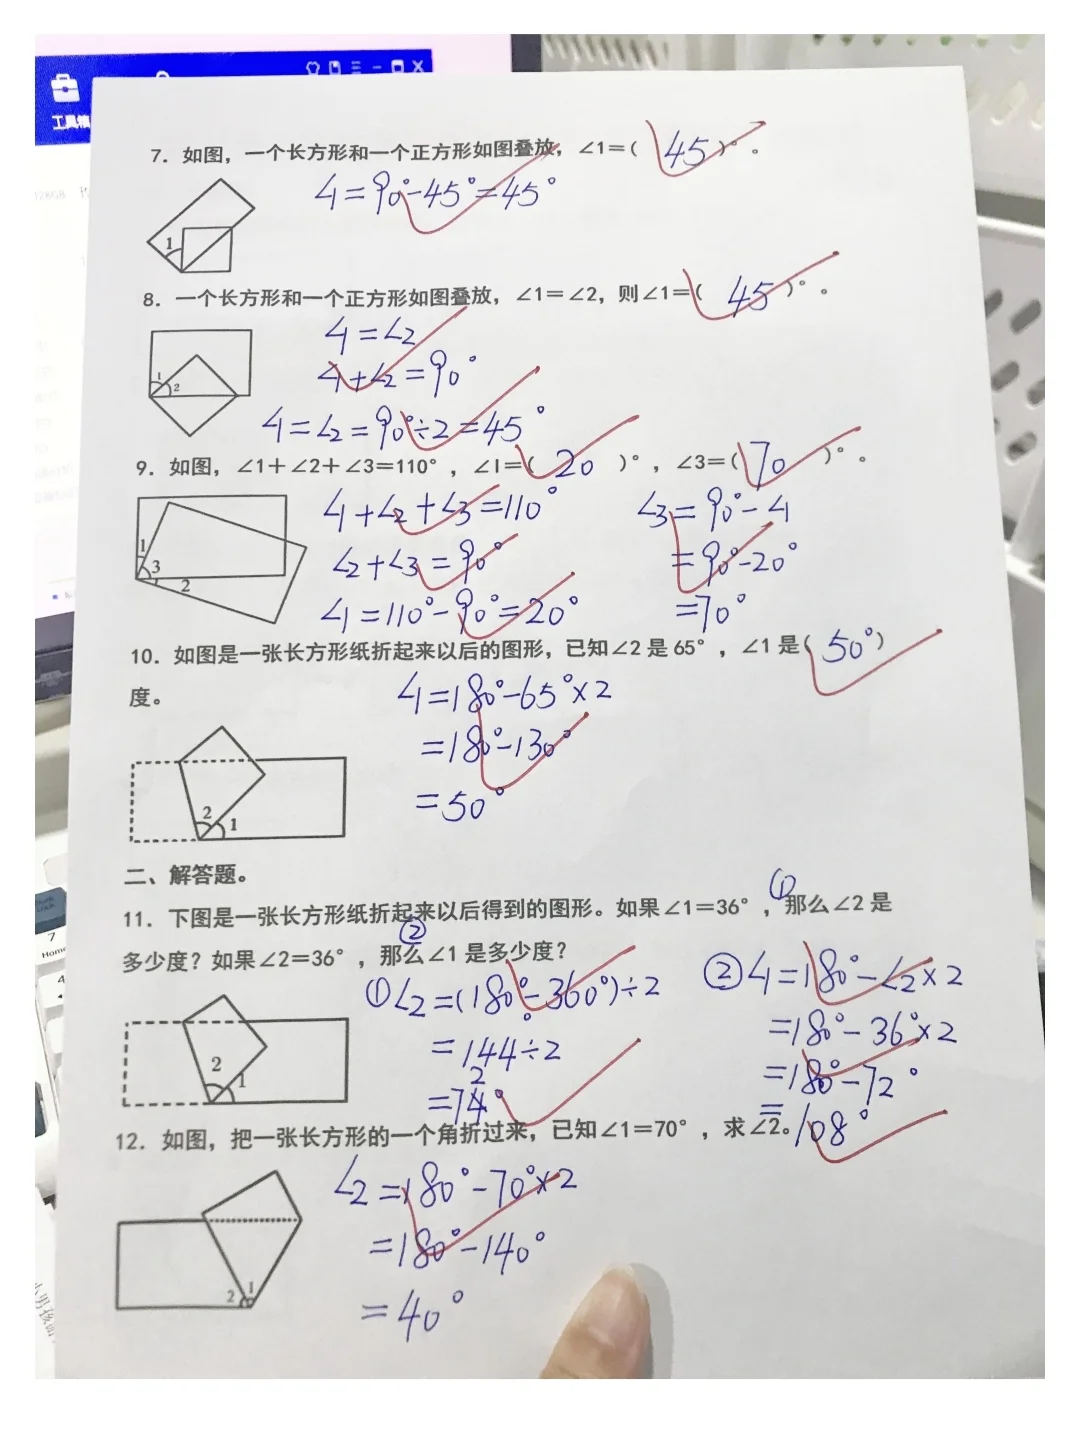 工具箱
7．如图，一个长方形和一个正方形如图叠放，∠1＝( 45 )°。
∠1＝90°－45°＝45°
1
8．一个长方形和一个正方形如图叠放，∠1＝∠2，则∠1＝( 45 )°。
∠1＝∠2
∠1＋∠2＝90°
1
2
∠1＝∠2＝90°÷2＝45°
9．如图，∠1＋∠2＋∠3＝110°，∠1＝( 20 )°，∠3＝( 70 )°。
∠1＋∠2＋∠3＝110° ∠3＝90°－∠1
1
3
2
∠2＋∠3＝90° ＝90°－20°
∠1＝110°－90°＝20° ＝70°
10．如图是一张长方形纸折起来以后的图形，已知∠2 是 65°，∠1 是( 50° )
度。
∠1＝180°－65°×2
＝180°－130°
＝50°
2
1
二、解答题。
①
11．下图是一张长方形纸折起来以后得到的图形。如果∠1＝36°，那么∠2 是
②
多少度？如果∠2＝36°，那么∠1 是多少度？
①∠2＝(180°－360°)÷2 ②∠1＝180°－∠2×2
＝144°÷2 ＝180°－36°×2
2
＝74° ＝180°－72°
＝108°
2
1
12．如图，把一张长方形的一个角折过来，已知∠1＝70°，求∠2。
∠2＝180°－70°×2
＝180°－140°
＝40°
1
2
7
Home
4